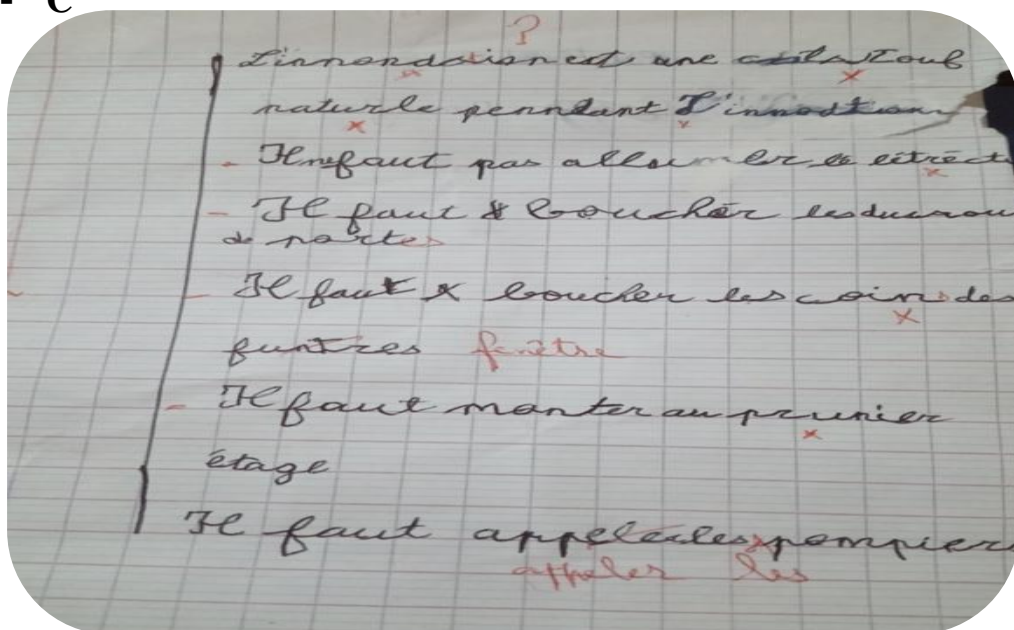 ?
L'innondation est une
naturle pendant L'innodtion
- Il ne faut pas alloumer
- Il faut boucher les
de portes
- Il faut boucher les coin des
funtres fenêtre
- Il faut monter au prunier
étage
Il faut appeleiles pompier
appeler les